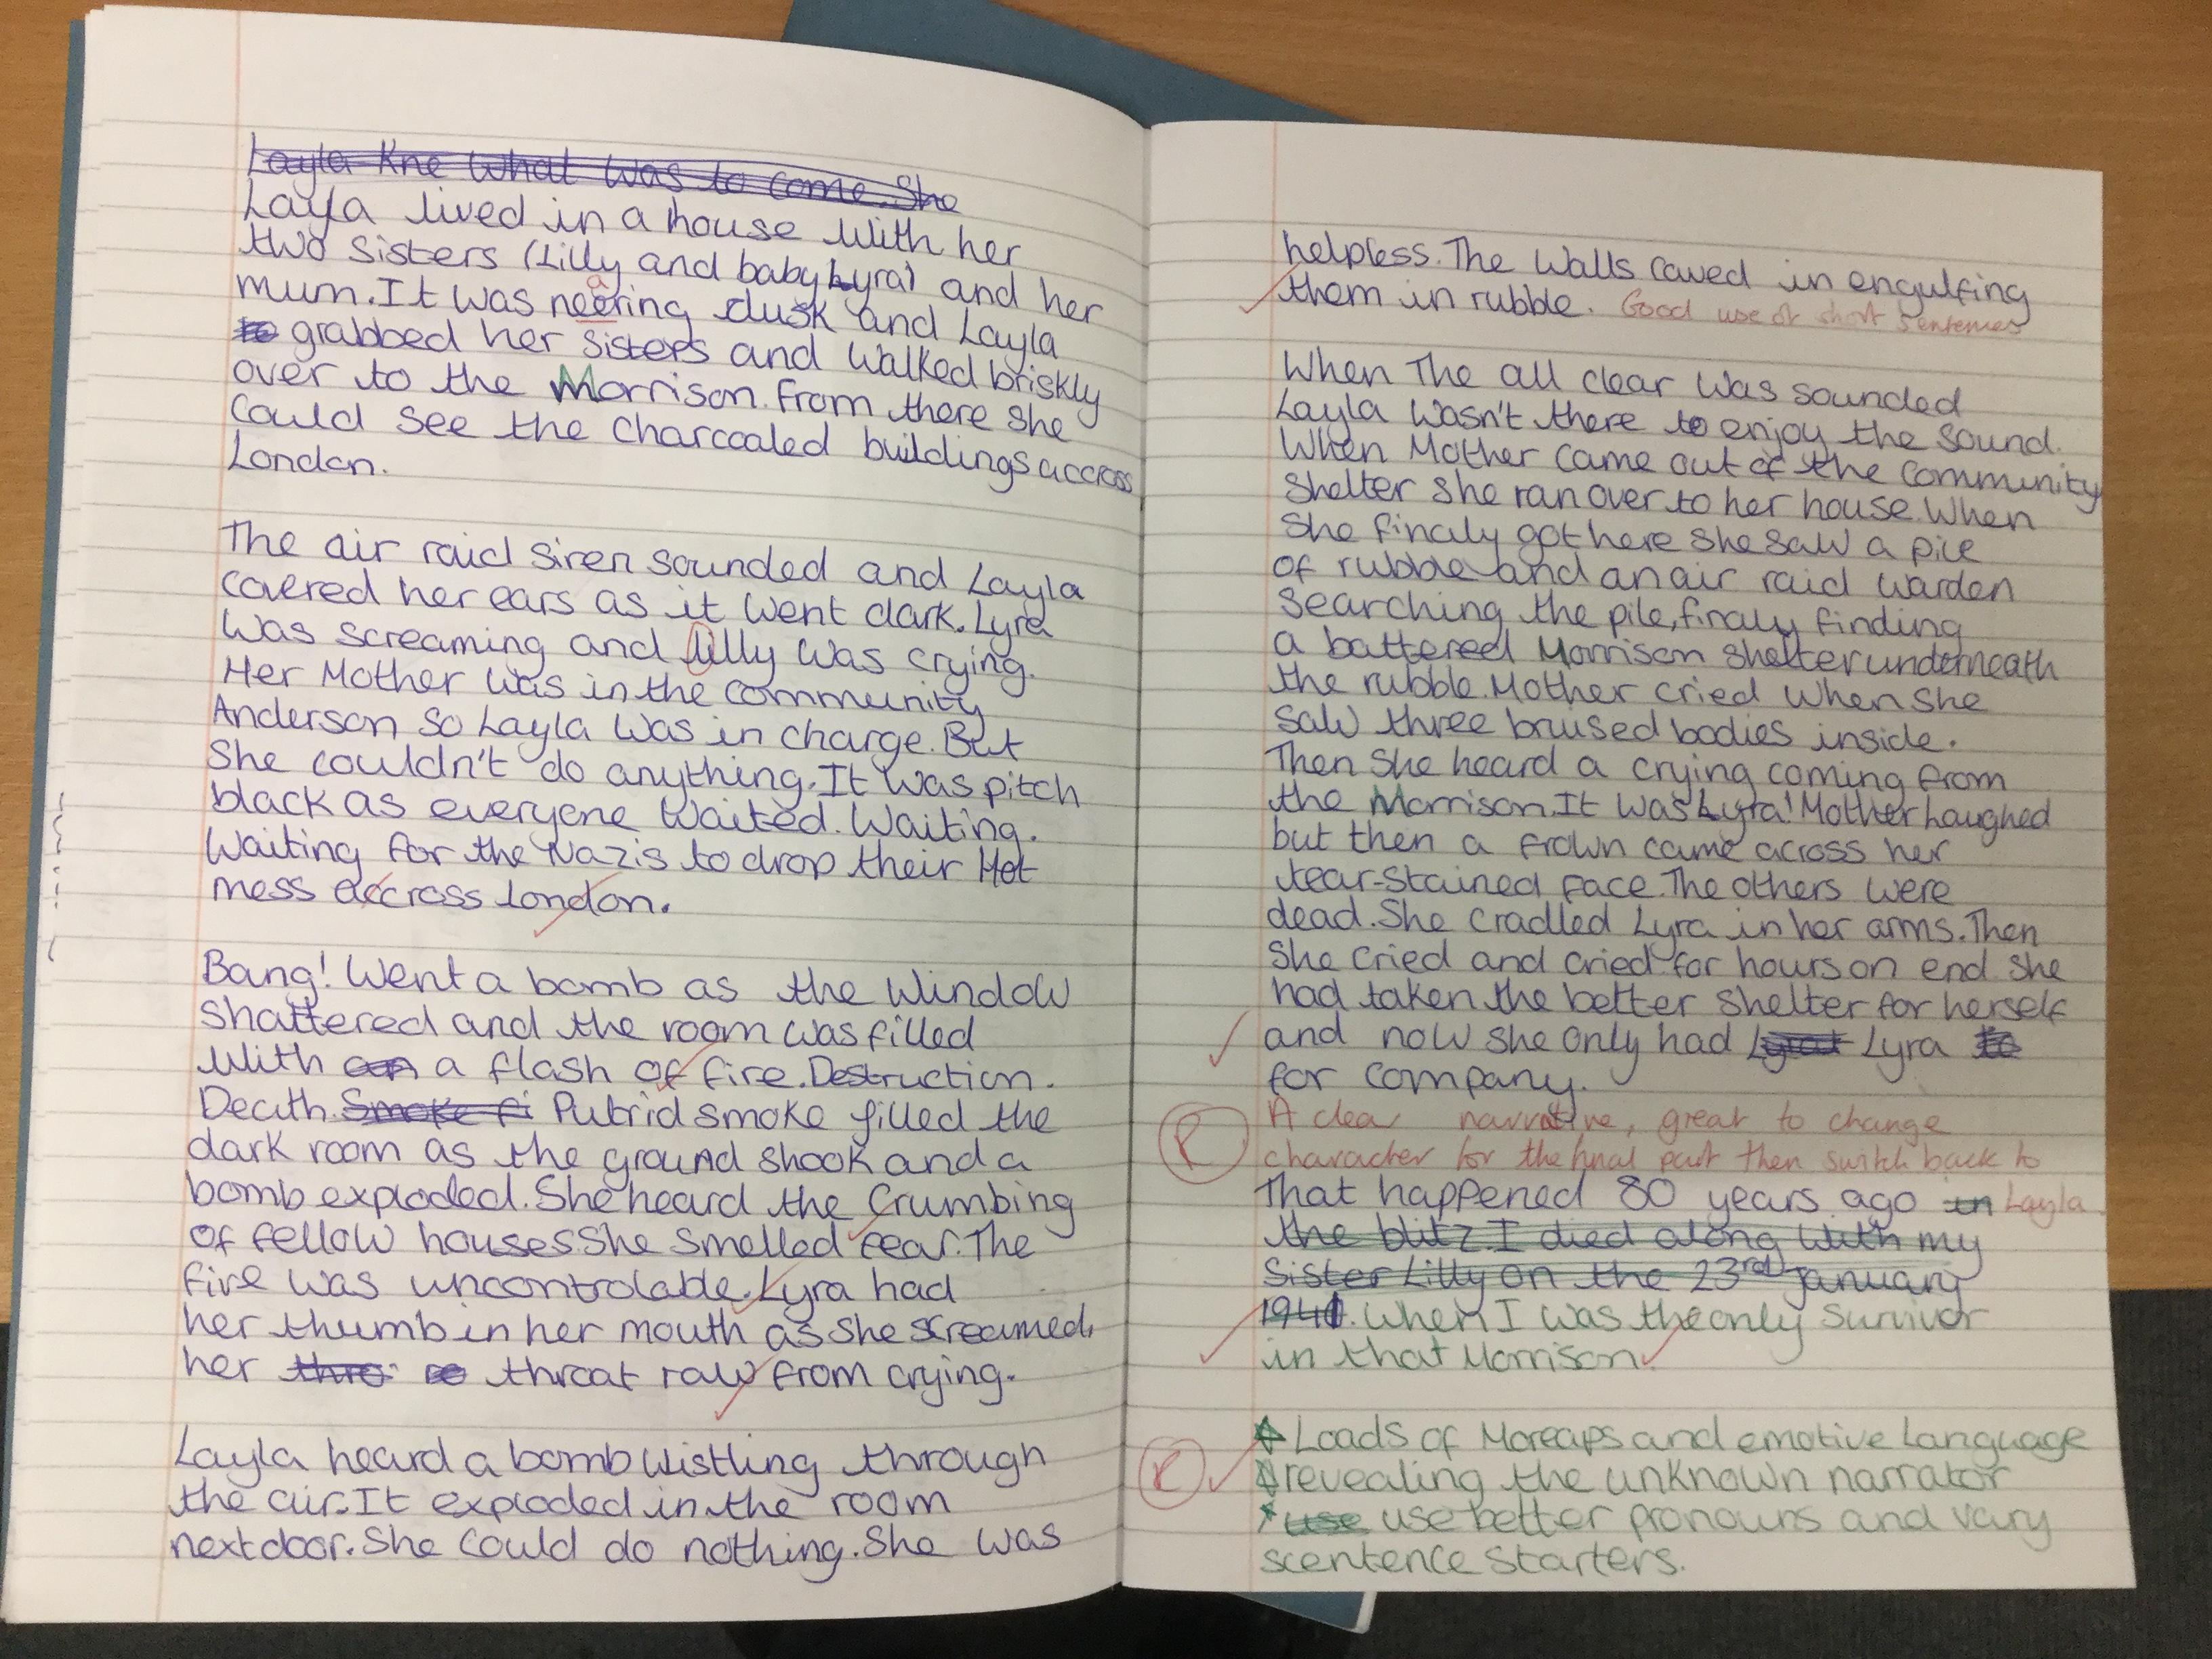 Layla Kne what was to come. She
Layla lived in a house with her
two sisters (Lilly and baby Lyra) and her
mum. It was neering dusk and Layla
a
to grabbed her sisters and walked briskly
over to the Morrison. From there she
could see the charcoaled buildings accross
London.
The air raid siren sounded and Layla
covered her ears as it went dark. Lyra
was screaming and Lilly was crying.
Her Mother was in the community
Anderson so Layla was in charge. But
she couldn't do anything. It was pitch
black as everyone waited. Waiting.
Waiting for the Nazis to drop their Hot
mess accross London.
Bang! Went a bomb as the window
shattered and the room was filled
with a flash of fire. Destruction.
Death. Smoke fi Putrid smoke filled the
dark room as the ground shook and a
bomb exploded. She heard the Crumbing
of fellow houses. She smelled fear. The
fire was uncontrolable. Lyra had
her thumb in her mouth as she screamed,
her thro throat raw from crying.
Layla heard a bomb wistling through
the air. It exploded in the room
next door. She could do nothing. She was
helpless. The walls caved in engulfing
them in rubble. Good use of short sentences
When The all clear was sounded
Layla wasn't there to enjoy the sound.
When Mother came out of the community
shelter she ran over to her house. When
she finaly got here she saw a pile
of rubble and an air raid warden
searching the pile, finaly finding
a battered Morrison shelter underneath
the rubble. Mother cried when she
saw three brused bodies inside.
Then she heard a crying coming from
the Morrison. It was Lyra! Mother laughed
but then a frown came across her
tear-stained face. The others were
dead. She cradled Lyra in her arms. Then
she cried and cried for hours on end. She
had taken the better shelter for herself
and now she only had Lyra
for company.
R A clear narrative, great to change
character for the final part then switch back to
That happened 80 years ago in Layla
the blitz. I died along with my
sister Lilly on the 23rd January
1941. When I was the only survivor
in that Morrison.
Loads of Moreaps and emotive language
R revealing the unknown narrator
use use better pronouns and vary
scentence starters.